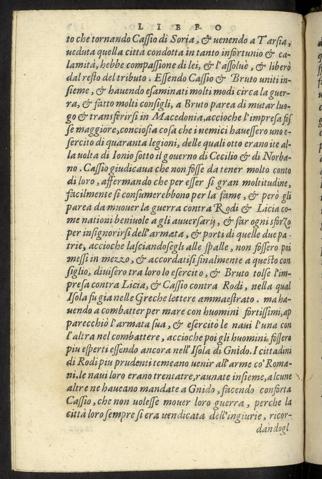 LIBRO
to che tornando Cassio di Soria, & uenendo a Tarsia,
ueduta quella città condotta in tanto infortunio & ca-
lamità, hebbe compassione di lei, & l'assoluè, & liberò
dal resto del tributo. Essendo Cassio & Bruto uniti in-
sieme, & hauendo esaminati molti modi circa la guer-
ra, & fatto molti consigli, a Bruto parea di mutar luo-
go & transferirsi in Macedonia, accioche l'impresa fos
se maggiore, conciosia cosa che i nemici hauessero uno e-
sercito di quaranta legioni, delle quali otto erano ite al-
la uolta di Ionio sotto il gouerno di Cecilio & di Norba-
no. Cassio giudicaua che non fosse da tener molto conto
di loro, affermando che per esser sì gran moltitudine,
facilmente si consumerebbono per la fame, & però gli
parea da muouer la guerra contra Rodi & Licia co-
me nationi beniuole a gli auuersarij, & far ogni sforzo
per insignorirsi dell'armata, & porti di quelle due pa-
trie, accioche lasciandosegli alle spalle, non fossero poi
messi in mezzo, & accordatisi finalmente a questo con
siglio, diuisero tra loro lo esercito, & Bruto tolse l'im-
presa contra Licia, & Cassio contra Rodi, nella qual
Isola fu gia nelle Greche lottere ammaestrato. ma ha-
uendo a combatter per mare con huomini fortissimi, ap
parecchiò l'armata sua, & esercitò le naui l'una con
l'altra nel combattere, accioche poi gli huomini, fossero
piu esperti essendo ancora nell'Isola di Gnido. I cittadini
di Rodi piu prudenti temeano uenir all'arme co' Roma-
ni. le naui loro erano trentatre, raunate insieme, alcune
altre ne haueano mandate a Gnido, facendo conforta
Cassio, che non uolesse mouer loro guerra, perche la
città loro sempre si era uendicata dell'ingiurie, ricor-
dandogl